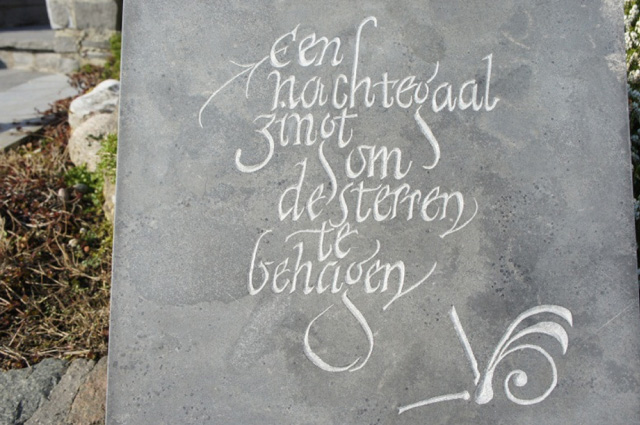 Een
nachtegaal
zingt
om
de sterren
te
behagen